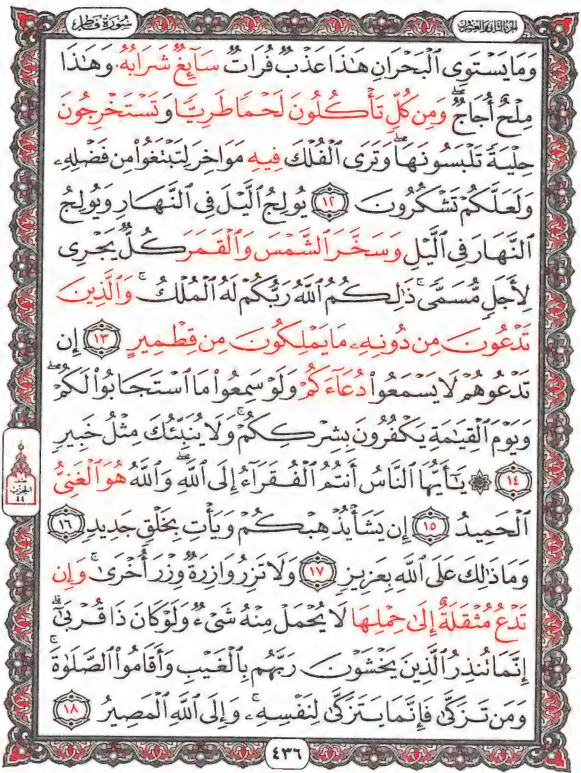 سورة فاطر
الجزء الثاني والعشرون
وَمَا يَسْتَوِى ٱلْبَحْرَانِ هَـٰذَا عَذْبٌ فُرَاتٌ سَآئِغٌ شَرَابُهُۥ وَهَـٰذَا
مِلْحٌ أُجَاجٌ ۖ وَمِن كُلٍّ تَأْكُلُونَ لَحْمًا طَرِيًّا وَتَسْتَخْرِجُونَ
حِلْيَةً تَلْبَسُونَهَا ۖ وَتَرَى ٱلْفُلْكَ فِيهِ مَوَاخِرَ لِتَبْتَغُوا۟ مِن فَضْلِهِۦ
وَلَعَلَّكُمْ تَشْكُرُونَ ١٢ يُولِجُ ٱلَّيْلَ فِى ٱلنَّهَارِ وَيُولِجُ
ٱلنَّهَارَ فِى ٱلَّيْلِ وَسَخَّرَ ٱلشَّمْسَ وَٱلْقَمَرَ كُلٌّ يَجْرِى
لِأَجَلٍ مُّسَمًّى ۚ ذَٰلِكُمُ ٱللَّهُ رَبُّكُمْ لَهُ ٱلْمُلْكُ ۚ وَٱلَّذِينَ
تَدْعُونَ مِن دُونِهِۦ مَا يَمْلِكُونَ مِن قِطْمِيرٍ ١٣ إِن
تَدْعُوهُمْ لَا يَسْمَعُوا۟ دُعَآءَكُمْ وَلَوْ سَمِعُوا۟ مَا ٱسْتَجَابُوا۟ لَكُمْ ۖ
وَيَوْمَ ٱلْقِيَـٰمَةِ يَكْفُرُونَ بِشِرْكِكُمْ ۚ وَلَا يُنَبِّئُكَ مِثْلُ خَبِيرٍ
١٤ ۞ يَـٰٓأَيُّهَا ٱلنَّاسُ أَنتُمُ ٱلْفُقَرَآءُ إِلَى ٱللَّهِ ۖ وَٱللَّهُ هُوَ ٱلْغَنِىُّ
ٱلْحَمِيدُ ١٥ إِن يَشَأْ يُذْهِبْكُمْ وَيَأْتِ بِخَلْقٍ جَدِيدٍ ١٦
وَمَا ذَٰلِكَ عَلَى ٱللَّهِ بِعَزِيزٍ ١٧ وَلَا تَزِرُ وَازِرَةٌ وِزْرَ أُخْرَىٰ ۚ وَإِن
تَدْعُ مُثْقَلَةٌ إِلَىٰ حِمْلِهَا لَا يُحْمَلْ مِنْهُ شَىْءٌ وَلَوْ كَانَ ذَا قُرْبَىٰٓ ۗ
إِنَّمَا تُنذِرُ ٱلَّذِينَ يَخْشَوْنَ رَبَّهُم بِٱلْغَيْبِ وَأَقَامُوا۟ ٱلصَّلَوٰةَ ۚ
وَمَن تَزَكَّىٰ فَإِنَّمَا يَتَزَكَّىٰ لِنَفْسِهِۦ ۚ وَإِلَى ٱللَّهِ ٱلْمَصِيرُ ١٨
الحزب
٤٤
٤٣٦